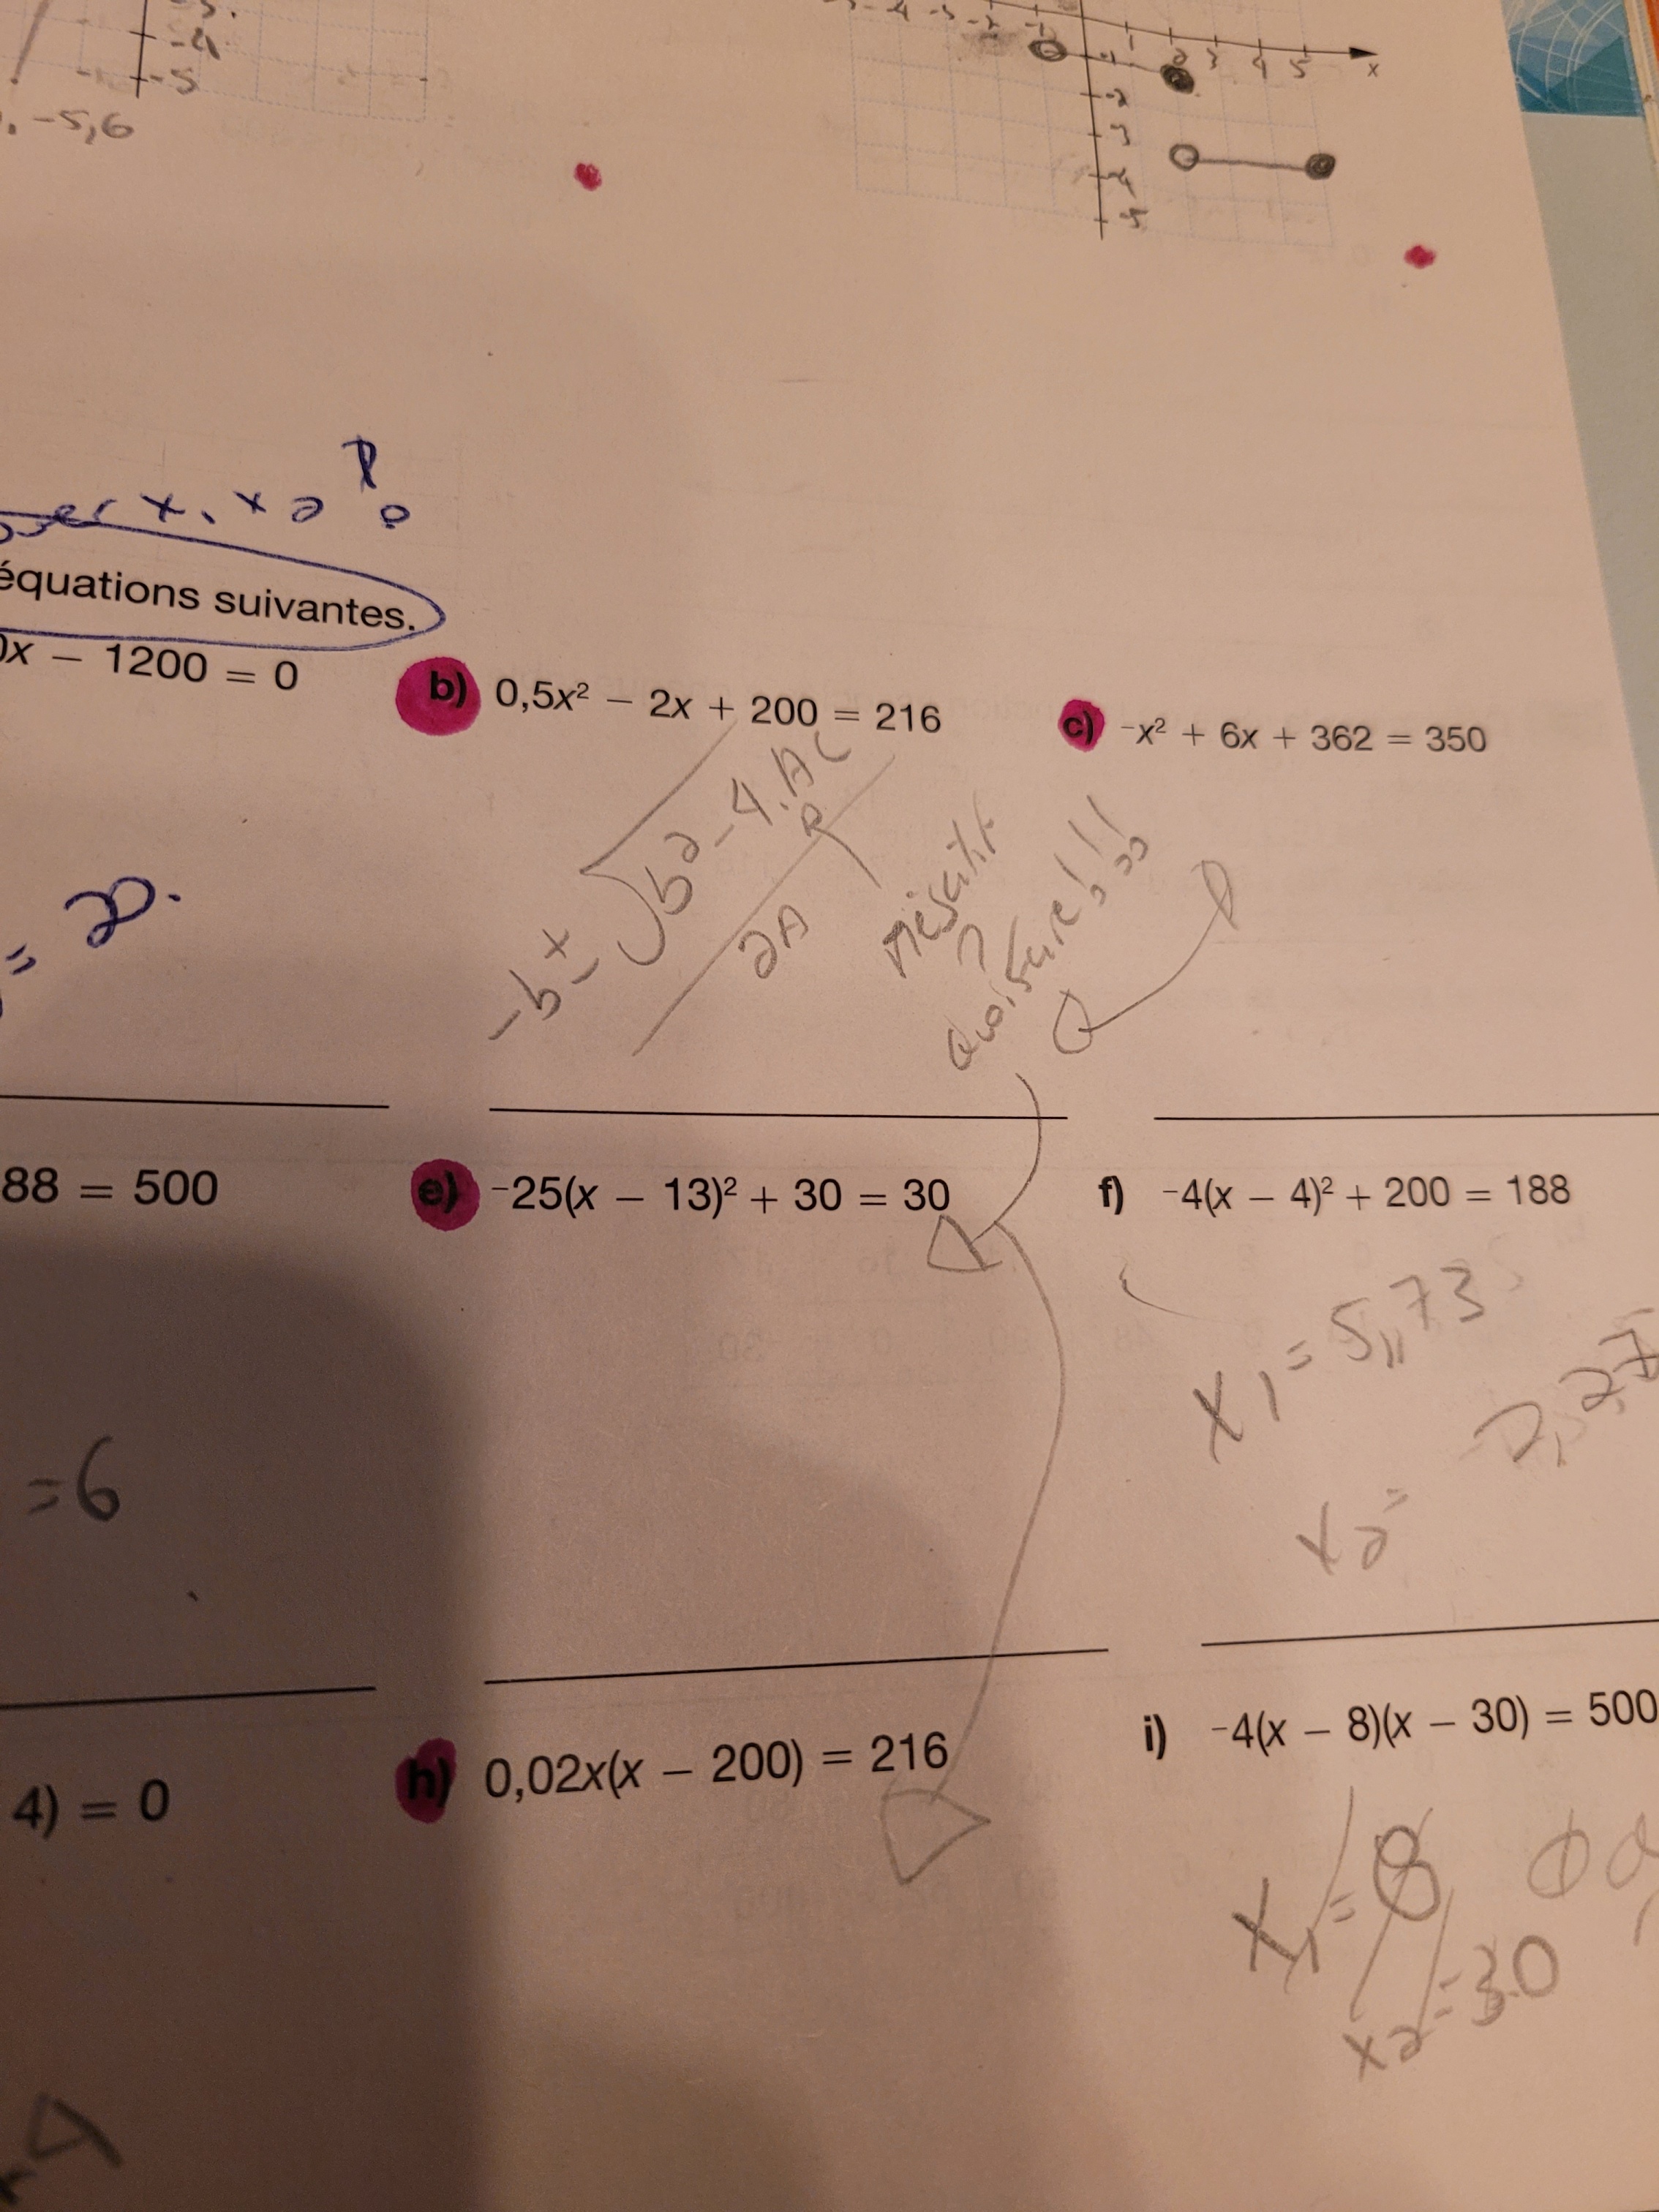 -4
-5
-5,6
-4 -3 -2 -1 1 2 3 4 5 x
-1
-2
-3
-4
-5
x1 x2 ?
équations suivantes.
0x − 1200 = 0
b) 0,5x² − 2x + 200 = 216
c) ⁻x² + 6x + 362 = 350
-b ± √b² - 4.AC
2A
négatif
?
quoi faire!!!
= 20.
88 = 500
e) ⁻25(x − 13)² + 30 = 30
f) ⁻4(x − 4)² + 200 = 188
x1 = 5,73
x2 = 2,27
= 6
4) = 0
h) 0,02x(x − 200) = 216
i) ⁻4(x − 8)(x − 30) = 500
x1 = 8
x2 = 30
4